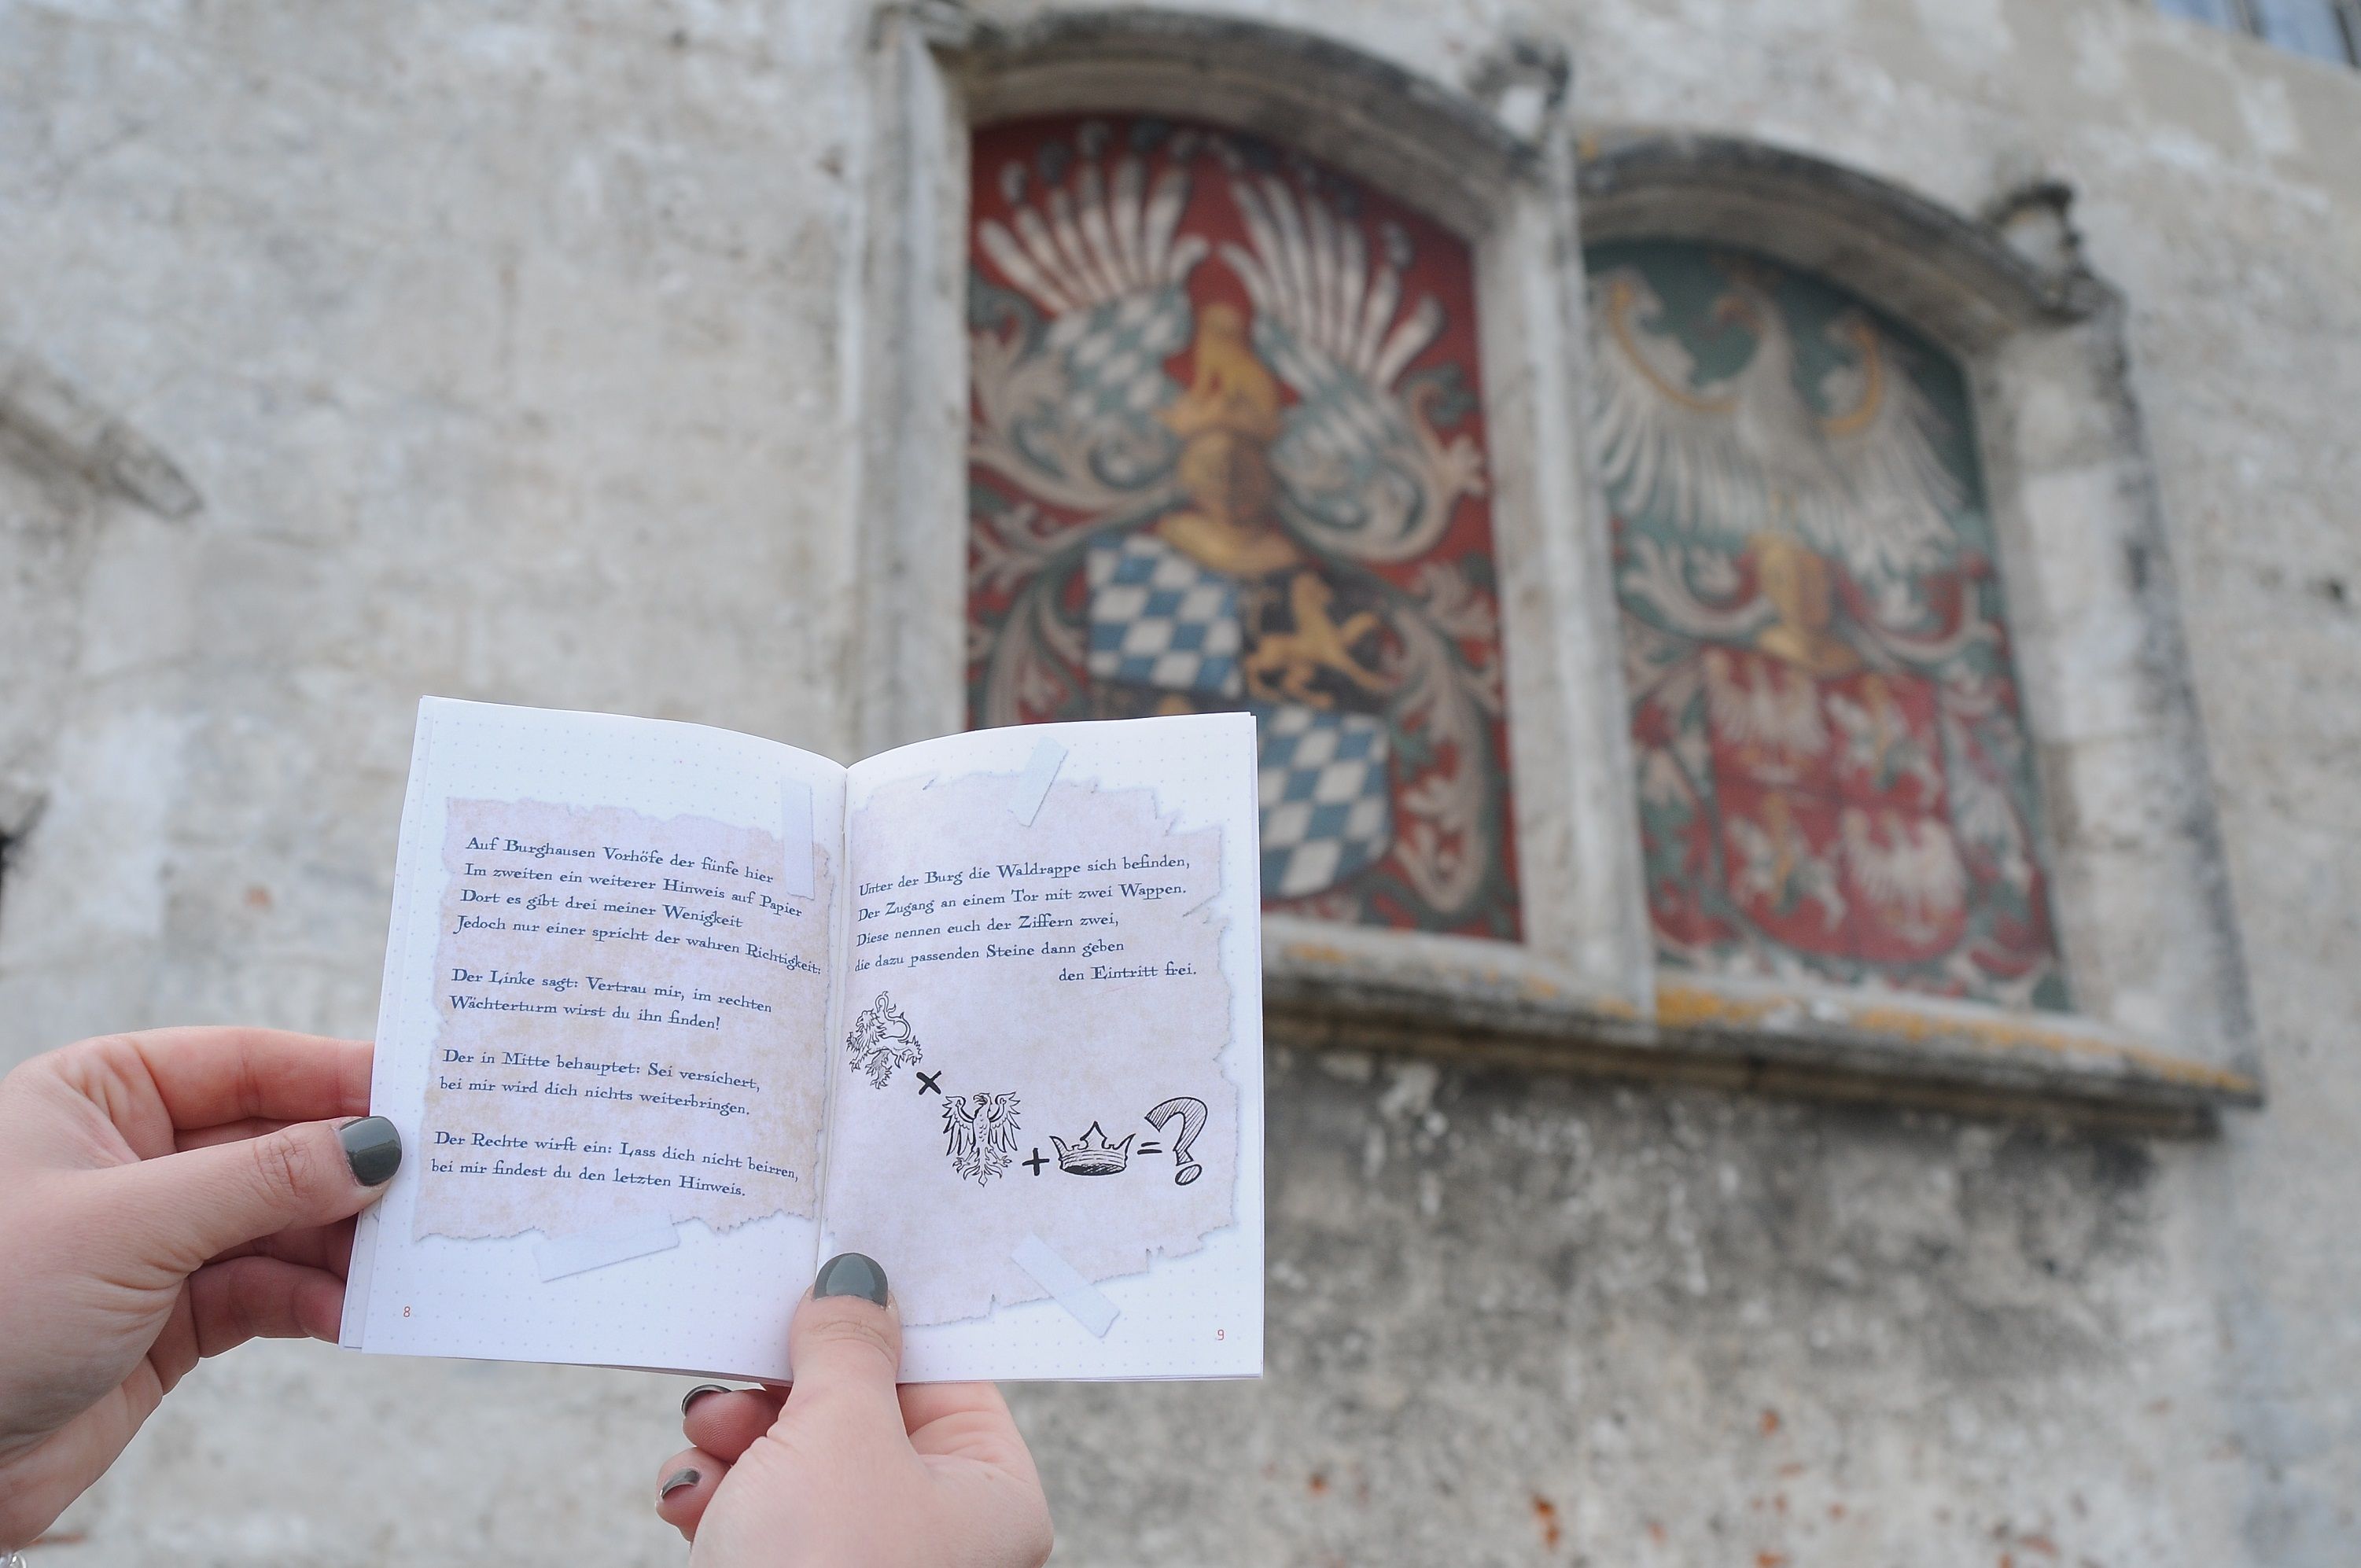 Auf Burghausen Vorhöfe der fünfe hier
Im zweiten ein weiterer Hinweis auf Papier
Dort es gibt drei meiner Wenigkeit
Jedoch nur einer spricht der wahren Richtigkeit:
Der Linke sagt: Vertrau mir, im rechten
Wächterturm wirst du ihn finden!
Der in Mitte behauptet: Sei versichert,
bei mir wird dich nichts weiterbringen.
Der Rechte wirft ein: Lass dich nicht beirren,
bei mir findest du den letzten Hinweis.
8
Unter der Burg die Waldrappe sich befinden,
Der Zugang an einem Tor mit zwei Wappen.
Diese nennen euch der Ziffern zwei,
die dazu passenden Steine dann geben
den Eintritt frei.
x
+
=
?
9